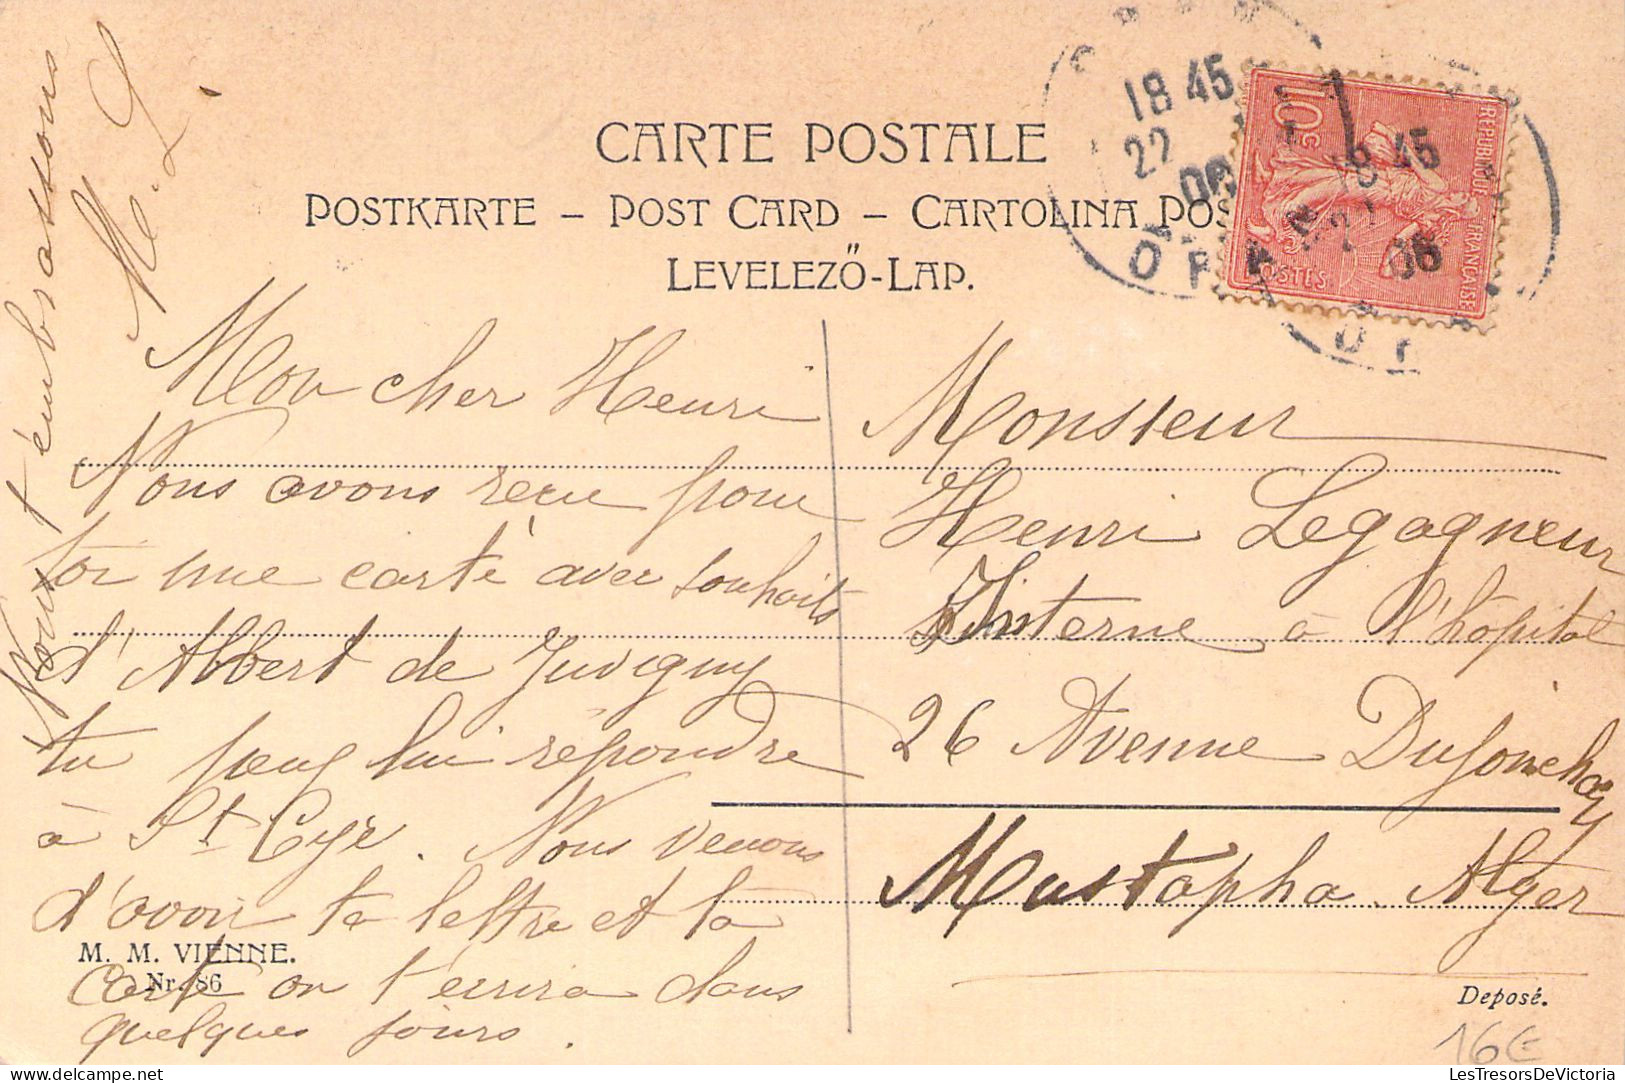 CARTE POSTALE
POSTKARTE – POST CARD – CARTOLINA POS
LEVELEZŐ-LAP.
18 45
22
06
ORAN
18 45
22
06
10c
REPUBLIQUE FRANÇAISE
POSTES
Mon cher Henri
Nous avons reçu pour
toi une carte avec souhaits
d'Albert de Juvigny
tu peux lui répondre
à St Cyr. Nous venons
d'avoir ta lettre et ta
carte on t'écrira dans
quelques jours.
Nous t'embrassons
M. L.
Monsieur
Henri Legagneur
Interne à l'hôpital
26 Avenue
Mustapha. Alger
M. M. VIENNE.
Nr. 86
Deposé.
16€
LesTresorsDeVictoria